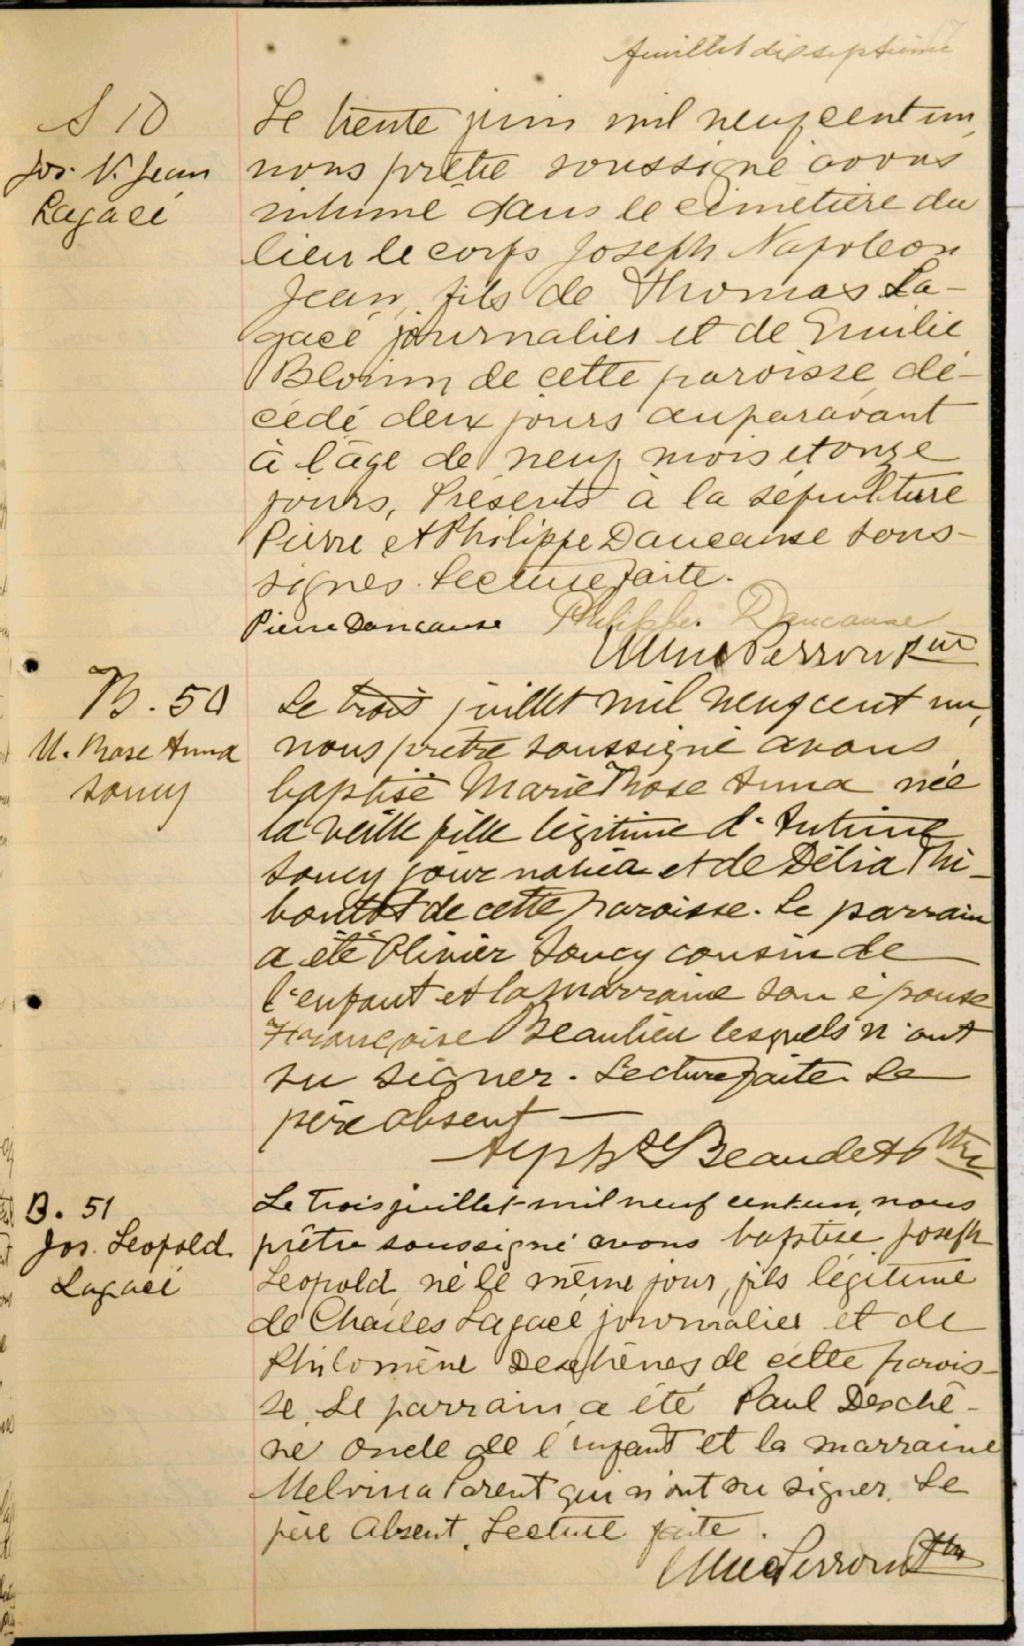 feuillet dix septième
S 10
Jos. N. Jean
Lagacé
Le trente juin mil neuf cent un,
nous prêtre soussigné avons
inhumé dans le cimetière du
lieu le corps Joseph Napoleon
Jean, fils de Thomas La-
gacé journalier et de Emilie
Blouin de cette paroisse, dé-
cédé deux jours auparavant
à l'âge de neuf mois et onze
jours, Présents à la sépulture
Pierre et Philippe Dancause sous-
signés. Lecture faite.
Pierre Dancause Philippe Dancause
Perron
B. 50
M. Rose Anna
Soucy
Le trois juillet mil neuf cent un,
nous prêtre soussigné avons
baptisé Marie Rose Anna née
la veille fille légitime d'Antime
Soucy journalier et de Délia Thi-
boutot de cette paroisse. Le parrain
a été Olivier Soucy cousin de
l'enfant et la marraine son épouse
Françoise Beaulieu lesquels n'ont
su signer. Lecture faite. Le
père absent
Alph Beaudet Ptre
B. 51
Jos. Leopold
Lagacé
Le trois juillet mil neuf cent un, nous
prêtre soussigné avons baptisé Joseph
Leopold, né le même jour, fils légitime
de Charles Lagacé journalier et de
Philomène Deschênes de cette parois-
se. Le parrain a été Paul Deschê-
ne oncle de l'enfant et la marraine
Melvina Parent qui n'ont su signer. Le
père absent. Lecture faite.
Perron Ptre